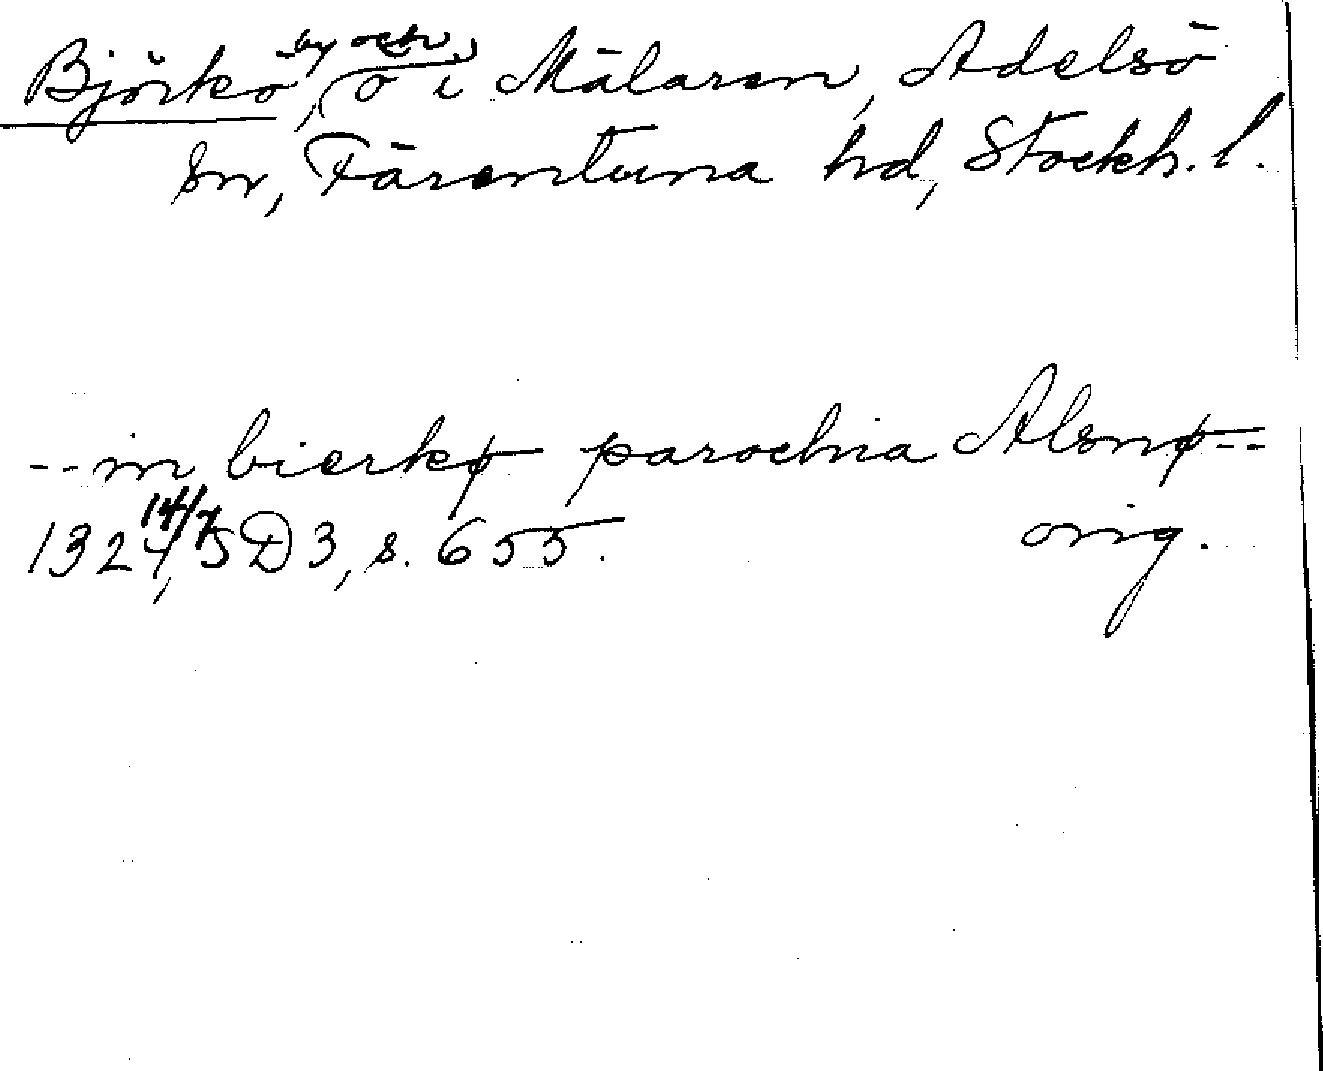 Björkö, by och ö i Mälaren, Adelsö
sn, Färentuna hd, Stockh. l.
-- in bierkø parochia Alsnø --
1324 14/7, SD 3, s. 655. orig.